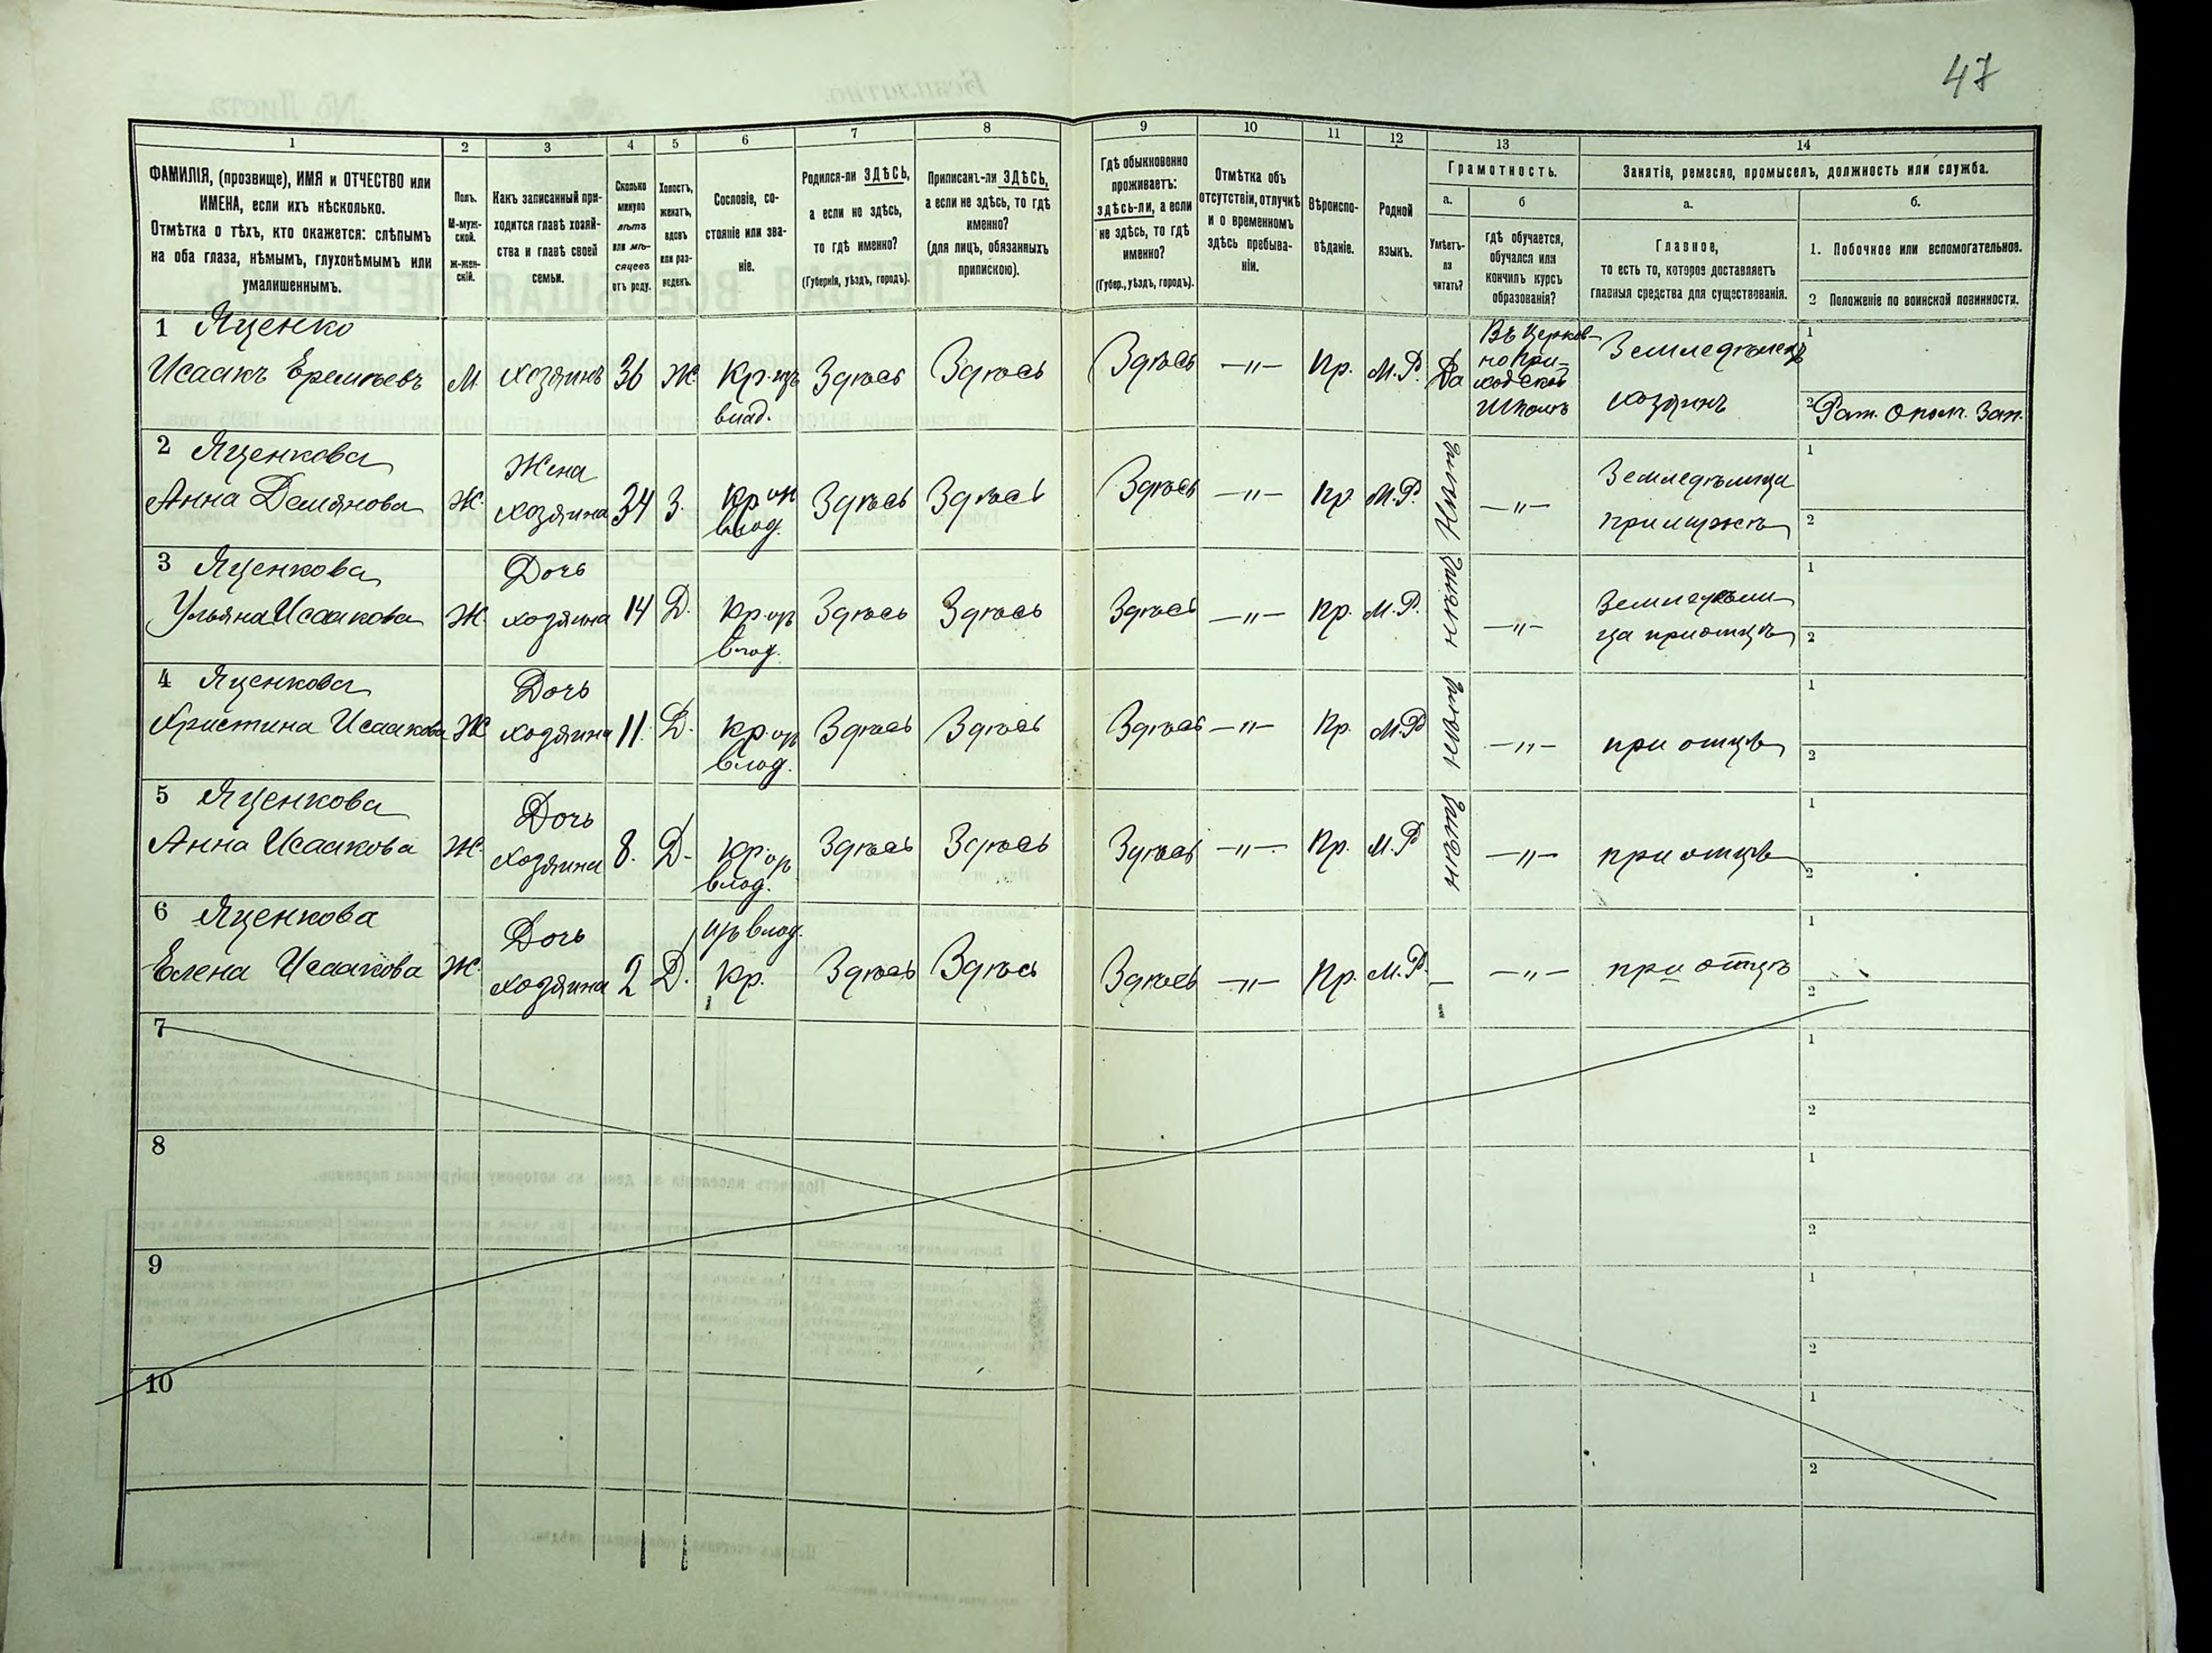 47
1
2
3
4
5
6
7
8
9
10
11
12
13
14
ФАМИЛІЯ, (прозвище), ИМЯ и ОТЧЕСТВО или
ИМЕНА, если ихъ нѣсколько.
Отмѣтка о тѣхъ, кто окажется: слѣпымъ
на оба глаза, нѣмымъ, глухонѣмымъ или
умалишеннымъ.
Полъ.
М-муж-
ской.
Ж-жен-
скій.
Какъ записанный при-
ходится главѣ хозяй-
ства и главѣ своей
семьи.
Сколько
минуло
лѣтъ
или мѣ-
сяцевъ
отъ роду.
Холостъ,
женатъ,
вдовъ
или раз-
веденъ.
Сословіе, со-
стояніе или зва-
ніе.
Родился-ли ЗДѢСЬ,
а если не здѣсь,
то гдѣ именно?
(Губернія, уѣздъ, городъ).
Приписанъ-ли ЗДѢСЬ,
а если не здѣсь, то гдѣ
именно?
(для лицъ, обязанныхъ
припискою).
Гдѣ обыкновенно
проживаетъ:
здѣсь-ли, а если
не здѣсь, то гдѣ
именно?
(Губер., уѣздъ, городъ).
Отмѣтка объ
отсутствіи, отлучкѣ
и о временномъ
здѣсь пребыва-
ніи.
Вѣроиспо-
вѣданіе.
Родной
языкъ.
Грамотность.
а.
Умѣетъ-
ли
читать?
б
гдѣ обучается,
обучался или
кончилъ курсъ
образованія?
Занятіе, ремесло, промыселъ, должность или служба.
а.
Главное,
то есть то, которое доставляетъ
главныя средства для существованія.
б.
1. Побочное или вспомогательное.
2 Положеніе по воинской повинности.
1 Яценко
Исаакъ Еремѣевъ М. хозяинъ 36 Ж. Кр. изъ влад. Здѣсь Здѣсь Здѣсь —"— Пр. М.Р. Да
Въ церков-
но при-
ходской
школѣ
Земледѣлецъ
хозяинъ
1
2 Рат. Опол. Зап.
2 Яценкова
Анна Демянова Ж. Жена хозяина 34 З. Кр. влад. Здѣсь Здѣсь Здѣсь —"— Пр М.Р. Нѣтъ —"—
Земледѣлица
при мужѣ
1
2
3 Яценкова
Ульяна Исаакова Ж. Дочь хозяина 14 Д. Кр. изъ влад. Здѣсь Здѣсь Здѣсь —"— Пр. М.Р. нѣтъ —"—
Земледѣли-
ца при отцѣ
1
2
4 Яценкова
Христина Исаакова Ж Дочь хозяина 11. Д. Кр. изъ влад. Здѣсь Здѣсь Здѣсь —"— Пр. М.Р нѣтъ —"— при отцѣ
1
2
5 Яценкова
Анна Исаакова Ж. Дочь хозяина 8. Д. Кр. изъ влад. Здѣсь Здѣсь Здѣсь —"— Пр. М.Р нѣтъ —"— при отцѣ
1
2
6 Яценкова
Елена Исаакова Ж. Дочь хозяина 2 Д. изъ влад. Кр. Здѣсь Здѣсь Здѣсь —"— Пр. М.Р. — —"— при отцѣ
1
2
7
1
2
8
1
2
9
1
2
10
1
2